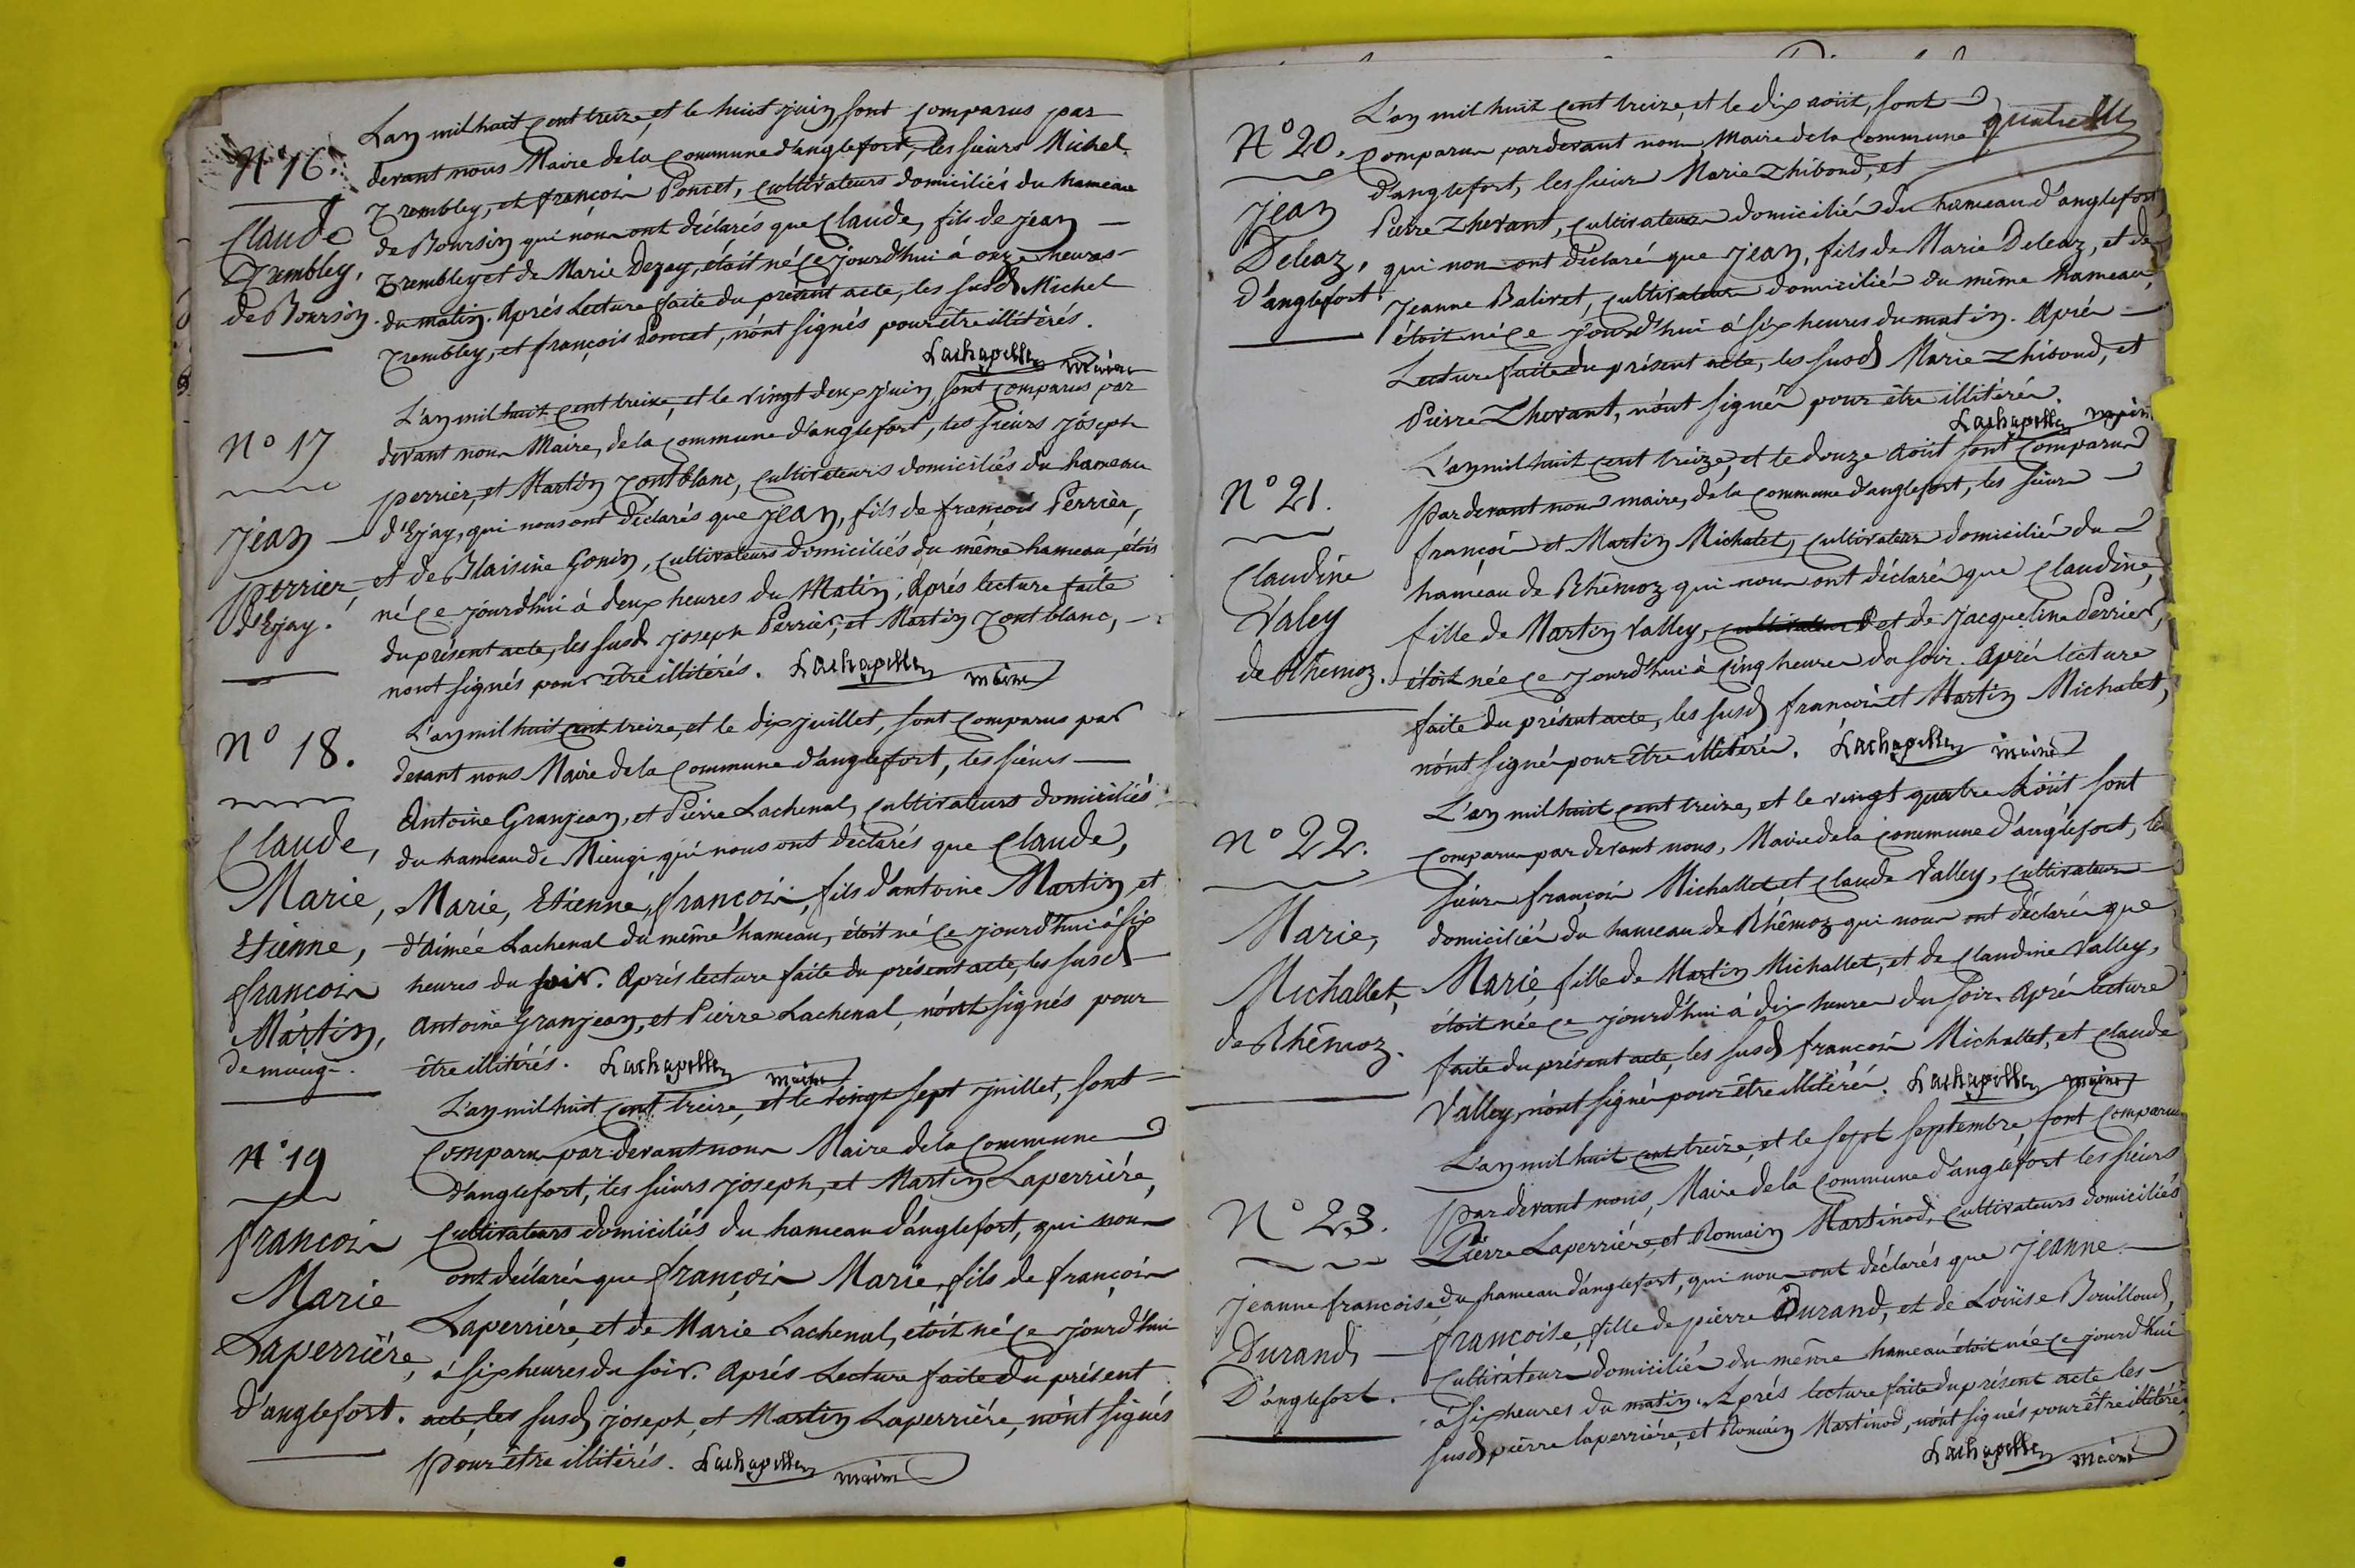 N° 16.
Claude
Trembley,
de Boursin.
L'an mil huit cent treize, et le huit juin, sont comparus par
devant nous Maire de la commune d'anglefort, les sieurs Michel
Trembley, et françois Poncet, cultivateurs domiciliés du hameau
de Boursin qui nous ont déclarés que Claude, fils de jean —
Trembley et de Marie Dezey, étoit né ce jourd'hui à onze heures
du matin. Après Lecture faite du présent acte, les susd Michel
Trembley, et françois Poncet, n'ont signés pour être illitérés.
Lachapelle maire
N° 17
Jean —
perrier,
d'Ejay.
L'an mil huit cent treize, et le vingt deux juin, sont comparus par
devant nous Maire, de la commune d'anglefort, les sieurs joseph
perrier, et Martin Contblanc, cultivateurs domiciliés du hameau
d'Ejay, qui nous ont déclarés que jean, fils de françois Perrier,
et de Blaisine Gonin, cultivateurs domiciliés du même hameau, étois
né ce jourd'hui à deux heures du Matin. Après lecture faite
du présent acte, les susd joseph Perrier, et Martin Contblanc, —
n'ont signés pour être illitérés. Lachapelle maire
N° 18.
Claude,
Marie,
Etienne,
françois
Martin,
de mieugi.
L'an mil huit cent treize, et le dix juillet, sont comparus par
devant nous Maire de la commune d'anglefort, les sieurs —
Antoine Granjean, et Pierre Lachenal, cultivateurs domiciliés
du hameau de Mieugi qui nous ont déclarés que Claude,
Marie, Etienne, françois, fils d'antoine Martin, et
d'aimée Lachenal du même hameau, étoit né ce jourd'hui à six
heures du soir. Après lecture faite du présent acte, les susd —
Antoine Granjean, et Pierre Lachenal, n'ont signés pour
être illitérés. Lachapelle maire
N° 19
françois
Marie
Laperrière,
d'anglefort.
L'an mil huit cent treize, et le vingt sept juillet, sont —
comparus par devant nous Maire de la commune
d'anglefort, les sieurs joseph, et Martin Laperrière,
cultivateurs domiciliés du hameau d'anglefort, qui nous
ont déclarés que françois Marie, fils de françois
Laperrière, et de Marie Lachenal, étoit né ce jourd'hui
à six heures du soir. Après Lecture faite du présent
acte, les susd joseph, et Martin Laperrière, n'ont signés
pour être illitérés. Lachapelle maire
N° 20.
Jean
Deleaz,
d'anglefort.
L'an mil huit cent treize, et le dix août, sont
comparus par devant nous Maire de la commune
d'anglefort, les sieurs Marie Thiboud, et
Pierre Thevant, cultivateurs domiciliés du hameau d'anglefort,
qui nous ont déclarés que jean, fils de Marie Deleaz, et de
Jeanne Balivet, cultivateurs domiciliés du même hameau,
étoit né ce jourd'hui à six heures du matin. Après —
Lecture faite du présent acte, les susd Marie Thiboud, et
Pierre Thevant, n'ont signés pour être illitérés.
Lachapelle maire
N° 21.
Claudine
Valey
de Rhêmoz.
L'an mil huit cent treize, et le douze Août sont comparus
par devant nous maire, de la commune d'anglefort, les sieurs —
françois et Martin Michalet, cultivateurs domiciliés du
hameau de Rhêmoz qui nous ont déclarés que Claudine,
fille de Martin Valley, et de Jacqueline Perrier,
étoit née ce jourd'hui à cinq heures du soir. Après lecture
faite du présent acte, les susd françois et Martin Michalet,
n'ont signés pour être illitérés. Lachapelle maire
N° 22.
Marie,
Michallet,
de Rhêmoz.
L'an mil huit cent treize, et le vingt quatre Août sont
comparus par devant nous, Maire de la commune d'anglefort, les
sieurs françois Michallet, et claude Valley, cultivateurs
domiciliés du hameau de Rhêmoz qui nous ont déclarés que
Marie, fille de Martin Michallet, et de Claudine Valley,
étoit née ce jourd'hui à dix heures du soir. Après lecture
faite du présent acte, les susd françois Michallet, et claude
Valley, n'ont signés pour être illitérés. Lachapelle maire
N° 23.
Jeanne françoise
Durand, —
D'anglefort.
L'an mil huit cent treize, et le sept septembre, sont comparus
par devant nous, Maire de la commune d'anglefort les sieurs
Pierre Laperrière, et Romain Martinod, cultivateurs domiciliés
du hameau d'anglefort, qui nous ont déclarés que jeanne —
françoise, fille de pierre Durand, et de Louise Bouilloud,
cultivateurs domiciliés du même hameau étoit née ce jourd'hui
à six heures du matin. Après lecture faite du présent acte les —
susd pierre laperrière, et Romain Martinod, n'ont signés pour être illitérés
Lachapelle maire